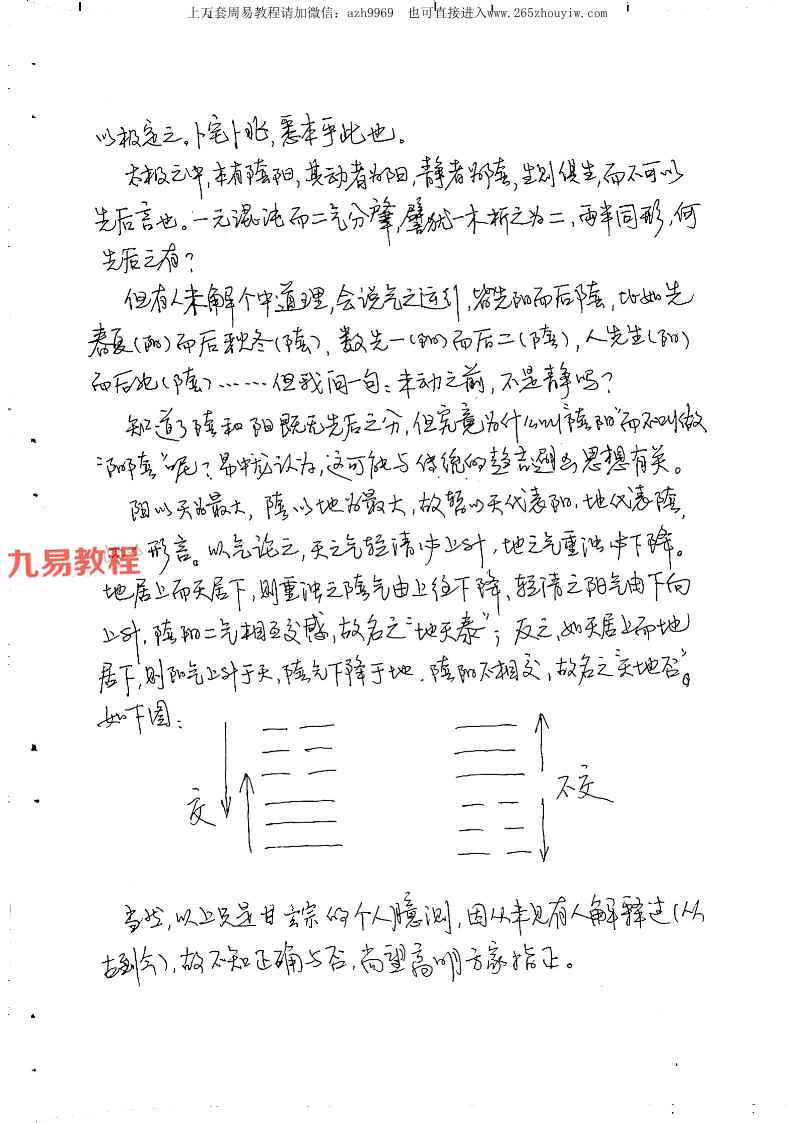 上万套周易教程请加微信：azh9969 也可直接进入www.265zhouyiw.com
以极定之。卜宅卜兆，悉本乎此也。
太极之中，本有陰阳，其动者为阳，静者为陰，生则俱生，而不可以
先后言也。一元混沌而二气分肇，譬犹一木析之为二，两半同形，何
先后之有？
但有人未解个中道理，会说气之运行，皆先阳而后陰，比如先
春夏（阳）而后秋冬（陰），数先一（阳）而后二（陰），人先生（阳）
而后死（陰）……但我问一句：未动之前，不是静吗？
知道了陰和阳既无先后之分，但究竟为什么叫“陰阳”而不叫做
“阳陰”呢？ 认为，这可能与传统的 思想有关。
阳以天为最大，陰以地为最大，故暂以天代表阳，地代表陰，
形言。以气论之，天之气轻清冲上升，地之气重浊冲下降。
九易教程
地居上而天居下，则重浊之陰气由上往下降，轻清之阳气由下向
上升，陰阳二气相互交感，故名之“地天泰”；反之，如天居上而地
居下，则阳气上升于天，陰气下降于地，陰阳不相交，故名之“天地否”。
如下图：
交
不交
当然，以上只是甘玄宗的个人臆测，因从未见有人解释过（从
古到今），故不知正确与否，尚望高明方家指正。